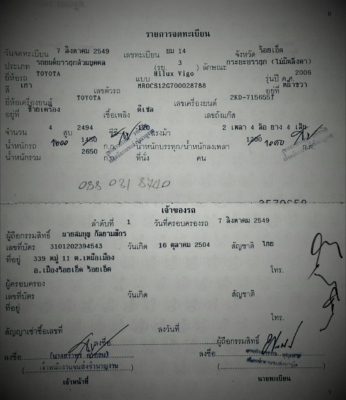 รายการจดทะเบียน
วันจดทะเบียน 7 สิงหาคม 2549 เลขทะเบียน ยม 14 จังหวัด ร้อยเอ็ด
ประเภท รถยนต์บรรทุกส่วนบุคคล รย. 3 ลักษณะ กระบะบรรทุก (ไม่มีหลังคา)
ยี่ห้อรถ TOYOTA แบบ Hilux Vigo รุ่นปี ค.ศ. 2006
สี เทา เลขตัวรถ MROCS12G700028788 อยู่ที่ หน้าขวา
ยี่ห้อเครื่องยนต์ TOYOTA เลขเครื่องยนต์ 2KD-7156551
อยู่ที่ ข้างเครื่อง เชื้อเพลิง ดีเซล เลขถังแก๊ส
จำนวน 4 สูบ 2494 ซีซี 120 แรงม้า 2 เพลา 4 ล้อ ยาง 4 เส้น
น้ำหนักรถ ก.ก. น้ำหนักบรรทุก/น้ำหนักลงเพลา ก.ก.
น้ำหนักรวม 2650 ก.ก. ที่นั่ง คน
เจ้าของรถ
ลำดับที่ 1 วันที่ครอบครองรถ 7 สิงหาคม 2549
ผู้ถือกรรมสิทธิ์
เลขที่บัตร 3101202394543 วันเกิด 16 ตุลาคม 2504 สัญชาติ ไทย
ที่อยู่ 339 หมู่ 11 ต.เหนือเมือง
อ.เมืองร้อยเอ็ด ร้อยเอ็ด โทร.
ผู้ครอบครอง
เลขที่บัตร วันเกิด สัญชาติ
ที่อยู่ โทร.
สัญญาเช่าซื้อเลขที่ ลงวันที่ ผู้ถือกรรมสิทธิ์
ลงชื่อ ลงชื่อ
เจ้าหน้าที่ นายทะเบียน